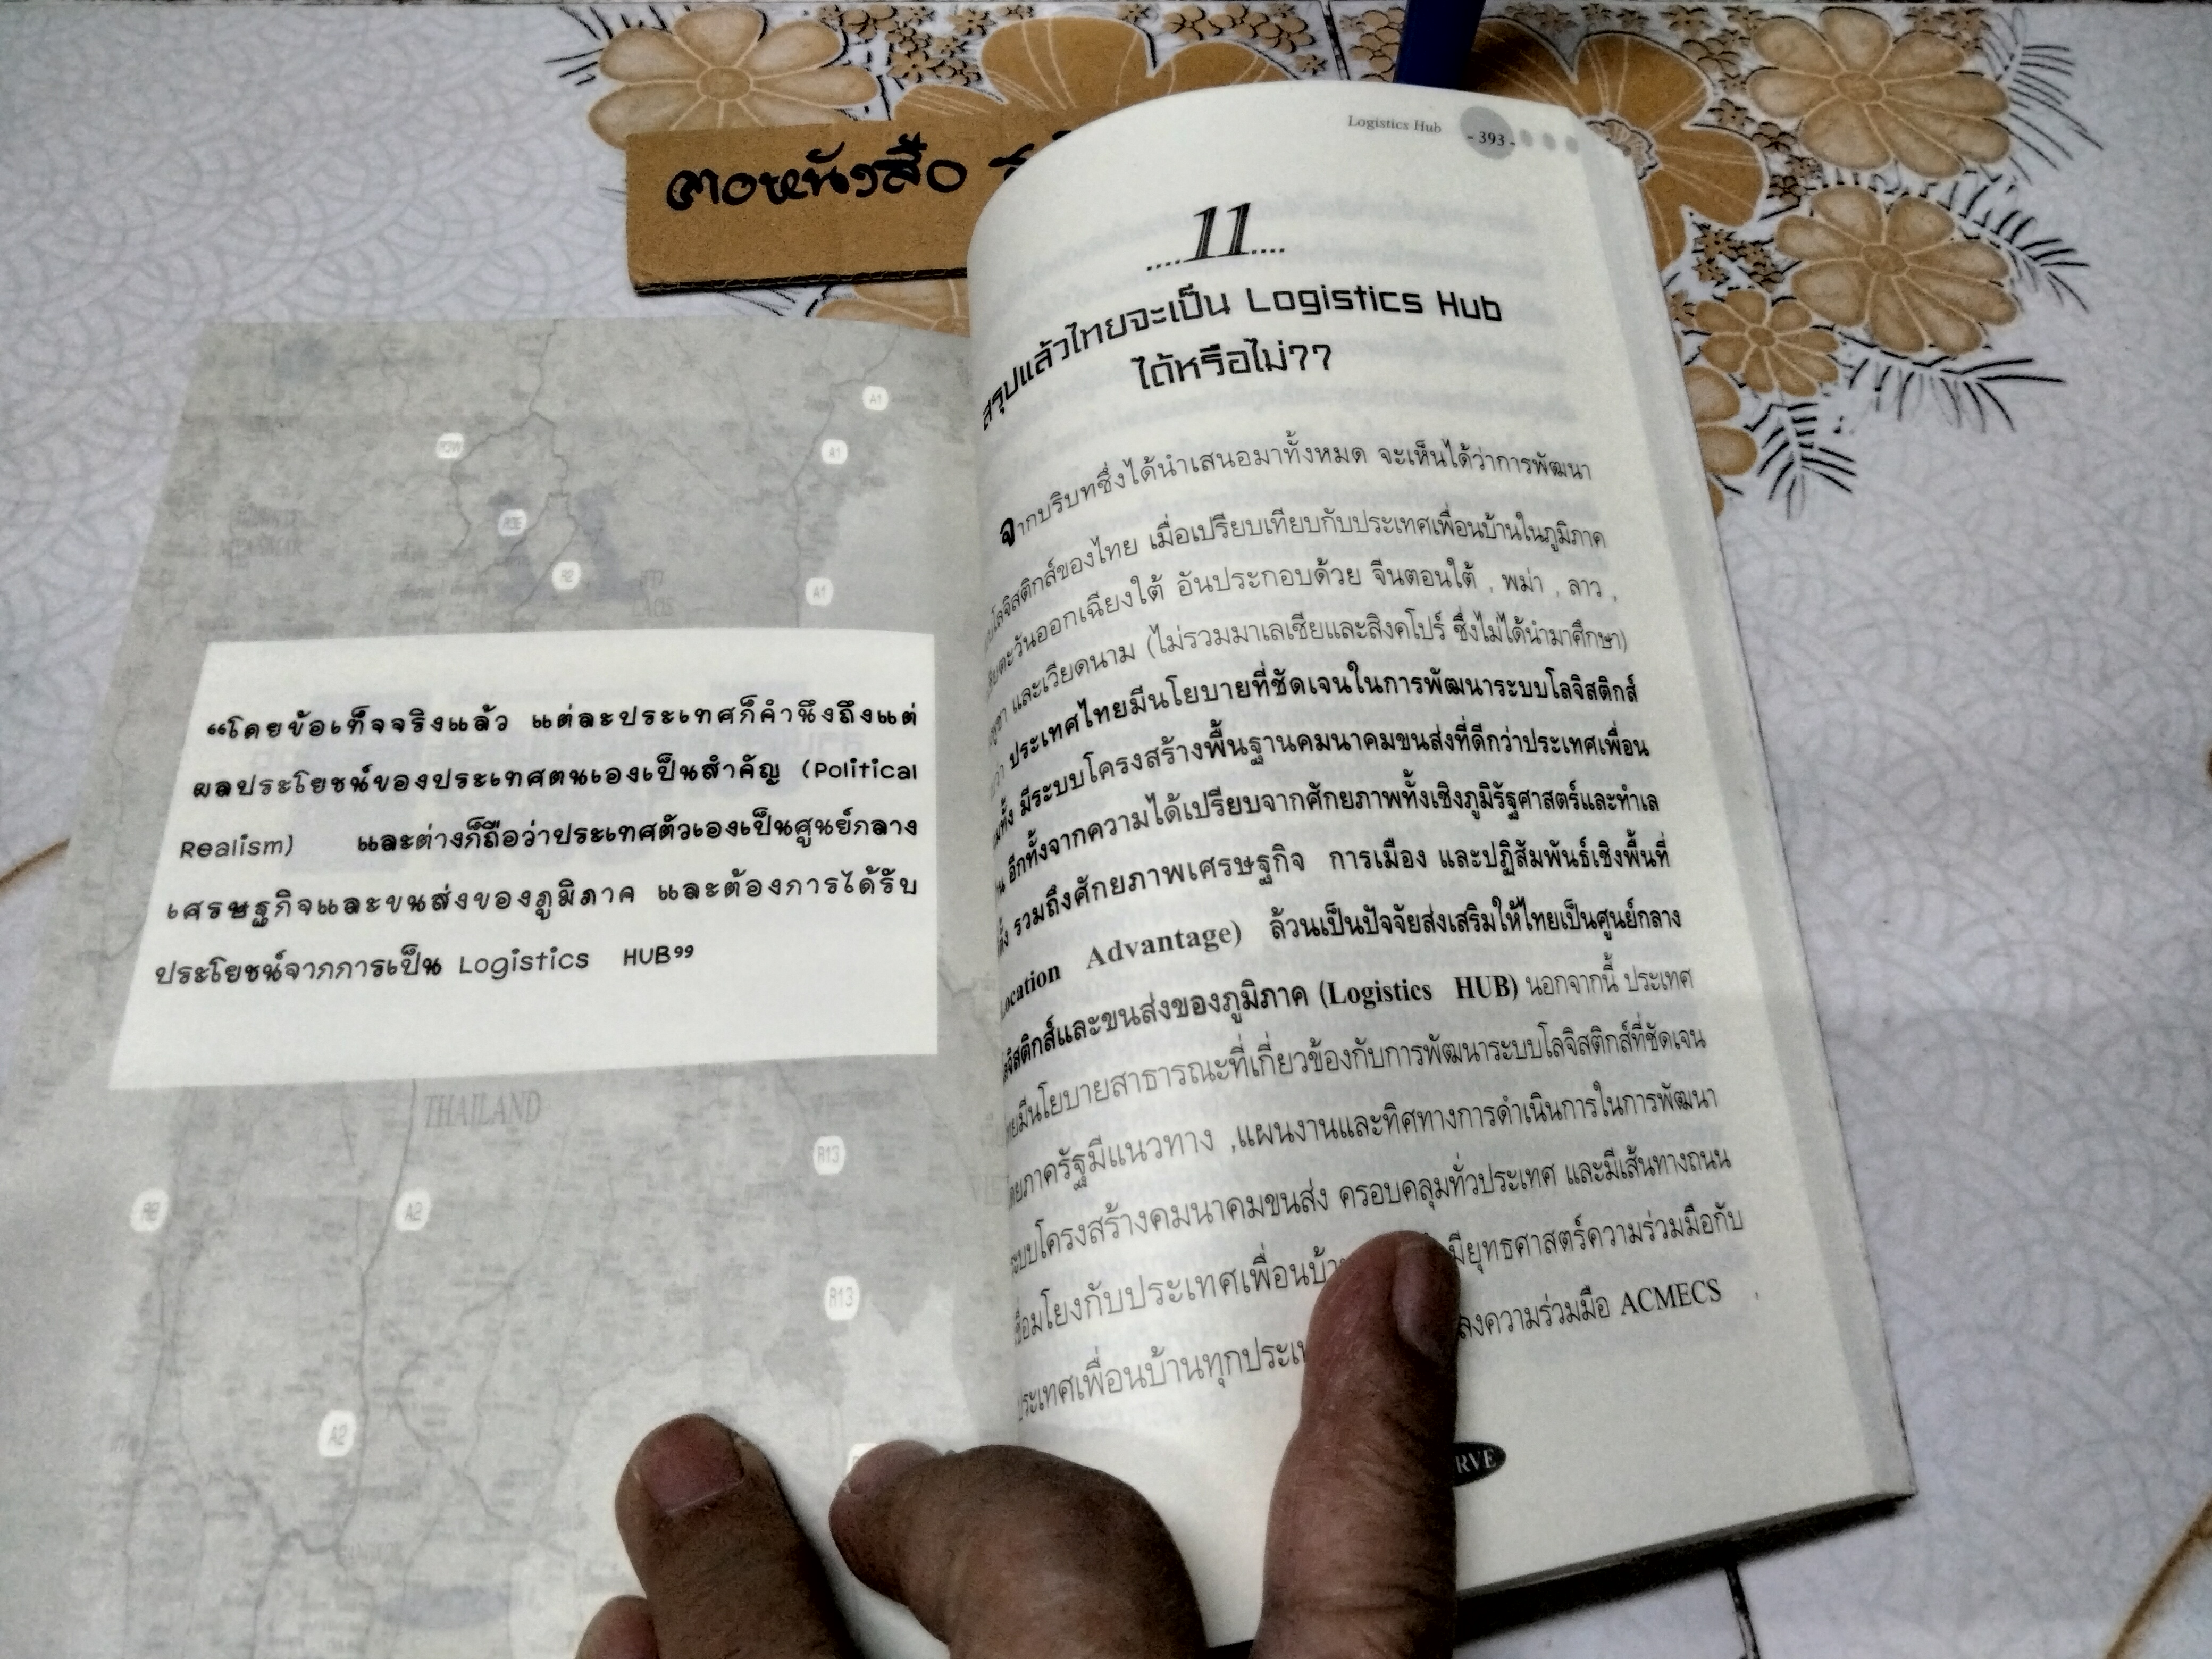 ตอหนังสือ
A1
R3W
A1
R3E
R2
A1
LAOS
“โดยข้อเท็จจริงแล้ว แต่ละประเทศก็คำนึงถึงแต่
ผลประโยชน์ของประเทศตนเองเป็นสำคัญ (Political
Realism) และต่างก็ถือว่าประเทศตัวเองเป็นศูนย์กลาง
เศรษฐกิจและขนส่งของภูมิภาค และต้องการได้รับ
ประโยชน์จากการเป็น Logistics HUB”
THAILAND
R13
A2
R13
A2
Logistics Hub - 393 -
....11....
สรุปแล้วไทยจะเป็น Logistics Hub
ได้หรือไม่??
จากบริบทซึ่งได้นำเสนอมาทั้งหมด จะเห็นได้ว่าการพัฒนา
โลจิสติกส์ของไทย เมื่อเปรียบเทียบกับประเทศเพื่อนบ้านในภูมิภาค
ตะวันออกเฉียงใต้ อันประกอบด้วย จีนตอนใต้ , พม่า , ลาว ,
และเวียดนาม (ไม่รวมมาเลเซียและสิงคโปร์ ซึ่งไม่ได้นำมาศึกษา)
ประเทศไทยมีนโยบายที่ชัดเจนในการพัฒนาระบบโลจิสติกส์
มีระบบโครงสร้างพื้นฐานคมนาคมขนส่งที่ดีกว่าประเทศเพื่อน
อีกทั้งจากความได้เปรียบจากศักยภาพทั้งเชิงภูมิรัฐศาสตร์และทำเล
รวมถึงศักยภาพเศรษฐกิจ การเมือง และปฏิสัมพันธ์เชิงพื้นที่
Location Advantage) ล้วนเป็นปัจจัยส่งเสริมให้ไทยเป็นศูนย์กลาง
จิสติกส์และขนส่งของภูมิภาค (Logistics HUB) นอกจากนี้ ประเทศ
มีนโยบายสาธารณะที่เกี่ยวข้องกับการพัฒนาระบบโลจิสติกส์ที่ชัดเจน
ภาครัฐมีแนวทาง ,แผนงานและทิศทางการดำเนินการในการพัฒนา
ระบบโครงสร้างคมนาคมขนส่ง ครอบคลุมทั่วประเทศ และมีเส้นทางถนน
เชื่อมโยงกับประเทศเพื่อนบ้า มียุทธศาสตร์ความร่วมมือกับ
ประเทศเพื่อนบ้านทุกประเ ลงความร่วมมือ ACMECS ,
RVE